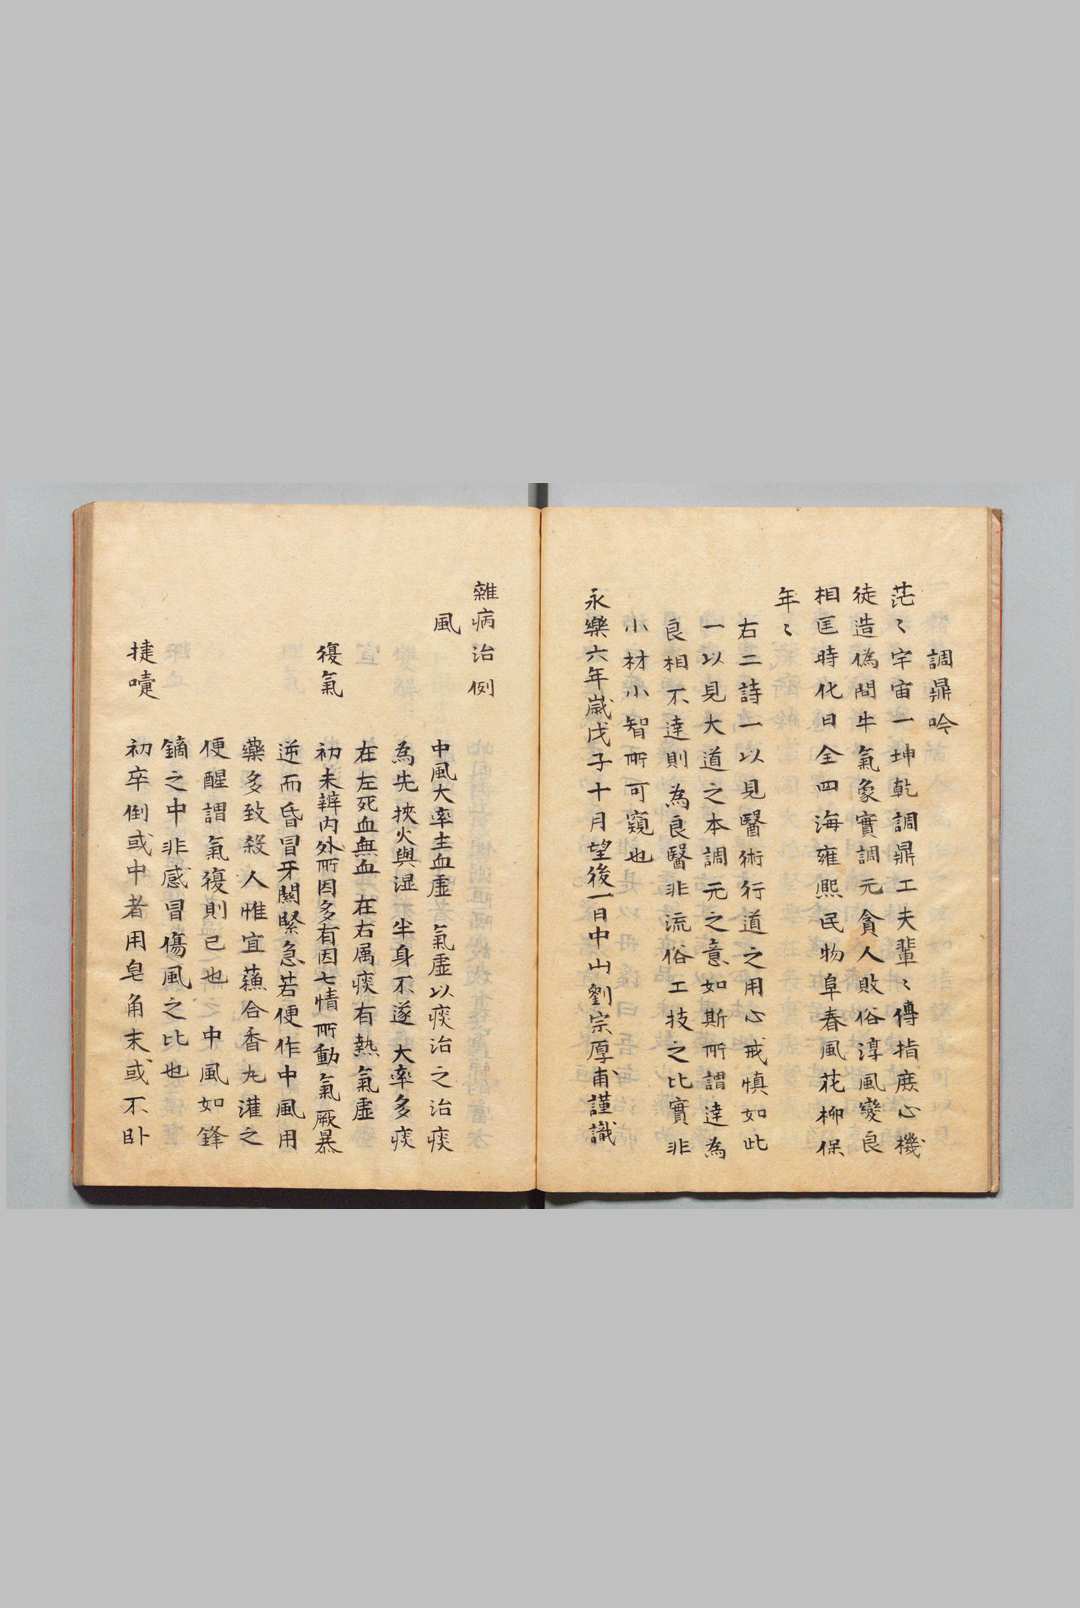 調鼎吟
茫〻宇宙一坤乾調鼎工夫輩〻傳指庻心機
徒造偽問牛氣象實調元貪人敗俗淳風變良
相匡時化日全四海雍熙民物阜春風花柳保
年〻
右二詩一以見醫術行道之用心戒慎如此
一以見大道之本調元之意如斯所謂達為
良相不達則為良醫非流俗工技之比實非
小材小智所可窺也
永樂六年歲戊子十月望後一日中山劉宗厚甫謹識
雜病治例
風
中風大率主血虛 氣虛以痰治之治痰
為先挾火與湿 半身不遂 大率多痰
在左死血無血 在右属痰有熱氣虛
復氣 初未辨内外所因多有因七情所動氣厥暴
逆而昏冒牙關緊急若便作中風用
藥多致殺人惟宜蘓合香丸灌之
便醒謂氣復則已也 中風如鋒
鏑之中非感冒傷風之比也
㨗嚏 初卒倒或中者用皂角末或不卧